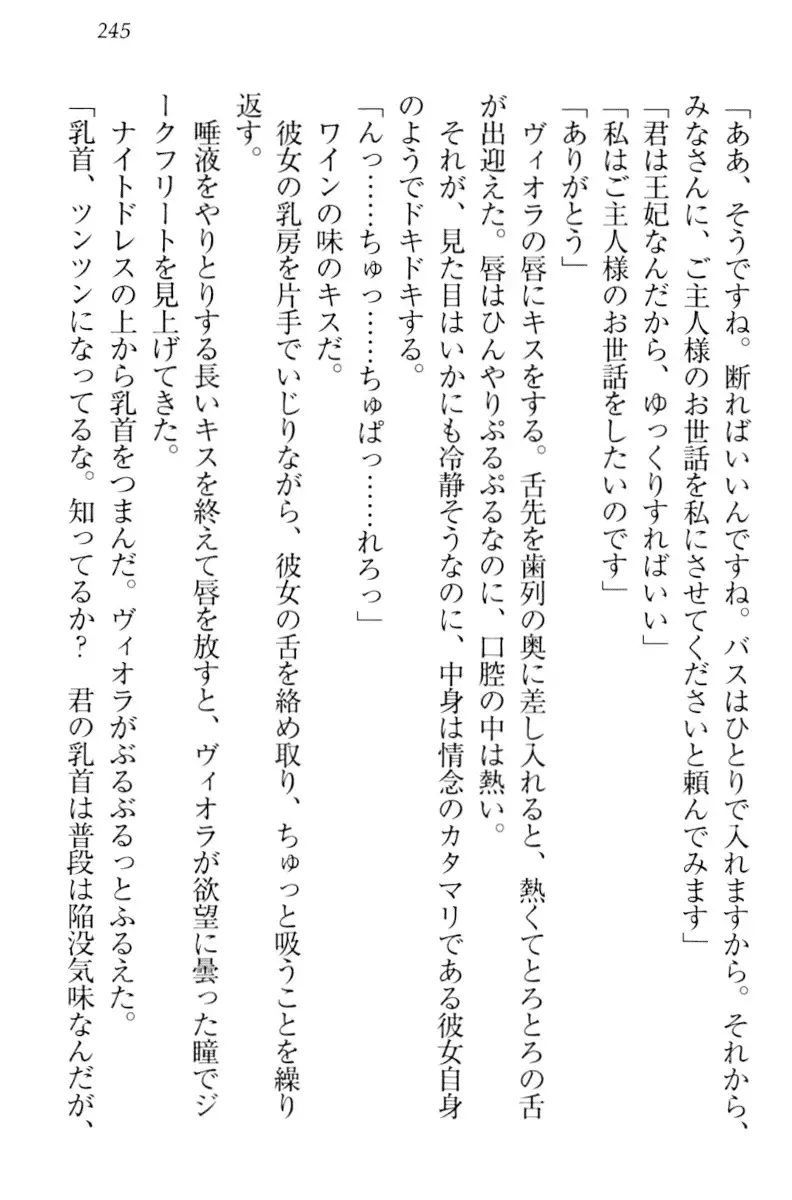 245
「ああ、そうですね。断ればいいんですね。バスはひとりで入れますから。それから、
みなさんに、ご主人様のお世話を私にさせてくださいと頼んでみます」
「君は王妃なんだから、ゆっくりすればいい」
「私はご主人様のお世話をしたいのです」
「ありがとう」
ヴィオラの唇にキスをする。舌先を歯列の奥に差し入れると、熱くてとろとろの舌
が出迎えた。唇はひんやりぷるぷるなのに、口腔の中は熱い。
それが、見た目はいかにも冷静そうなのに、中身は情念のカタマリである彼女自身
のようでドキドキする。
「んっ……ちゅっ……ちゅぱっ……れろっ」
ワインの味のキスだ。
彼女の乳房を片手でいじりながら、彼女の舌を絡め取り、ちゅっと吸うことを繰り
返す。
唾液をやりとりする長いキスを終えて唇を放すと、ヴィオラが欲望に曇った瞳でジ
ークフリートを見上げてきた。
ナイトドレスの上から乳首をつまんだ。ヴィオラがぶるぶるっとふるえた。
「乳首、ツンツンになってるな。知ってるか？　君の乳首は普段は陥没気味なんだが、